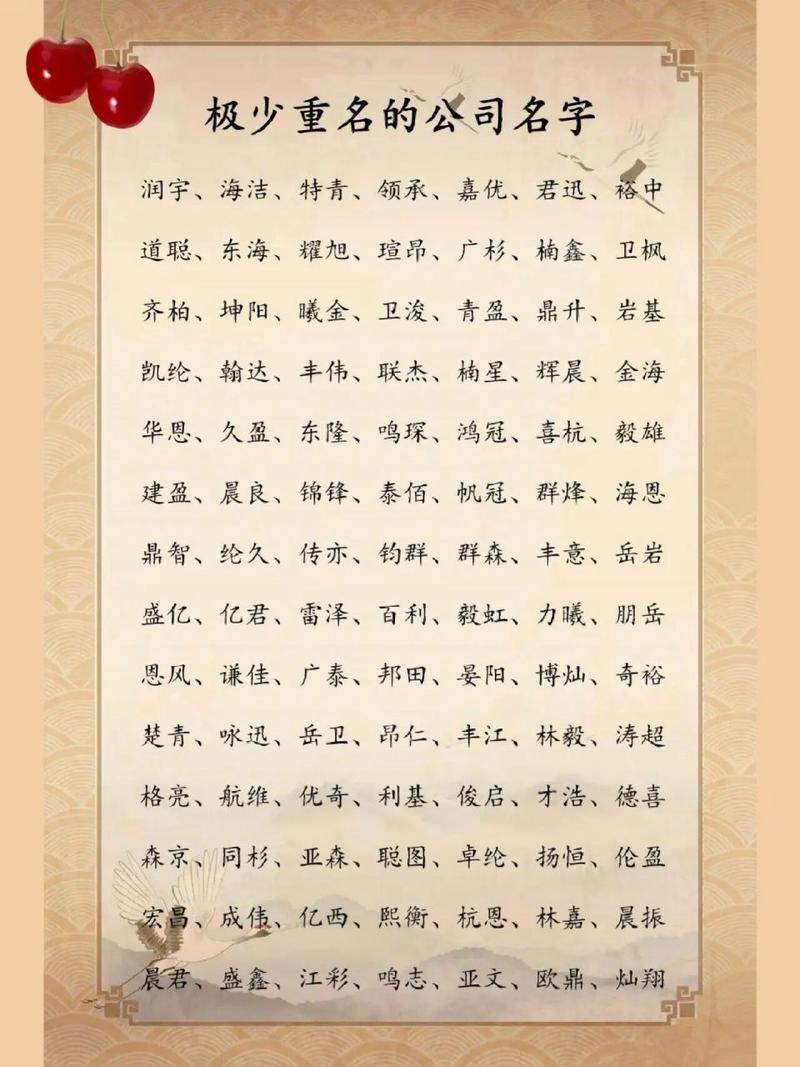 极少重名的公司名字
润宇、海洁、特青、领承、嘉优、君迅、裕中
道聪、东海、耀旭、瑄昂、广杉、楠鑫、卫枫
齐柏、坤阳、曦金、卫浚、青盈、鼎升、岩基
凯纶、翰达、丰伟、联杰、楠星、辉晨、金海
华恩、久盈、东隆、鸣琛、鸿冠、喜杭、毅雄
建盈、晨良、锦锋、泰佰、帆冠、群烽、海恩
鼎智、纶久、传亦、钧群、群森、丰意、岳岩
盛亿、亿君、雷泽、百利、毅虹、力曦、朋岳
恩风、谦佳、广泰、邦田、晏阳、博灿、奇裕
楚青、咏迅、岳卫、昂仁、丰江、林毅、涛超
格亮、航维、优奇、利基、俊启、才浩、德喜
森京、同杉、亚森、聪图、卓纶、扬恒、伦盈
宏昌、成伟、亿西、熙衡、杭恩、林嘉、晨振
晨君、盛鑫、江彩、鸣志、亚文、欧鼎、灿翔